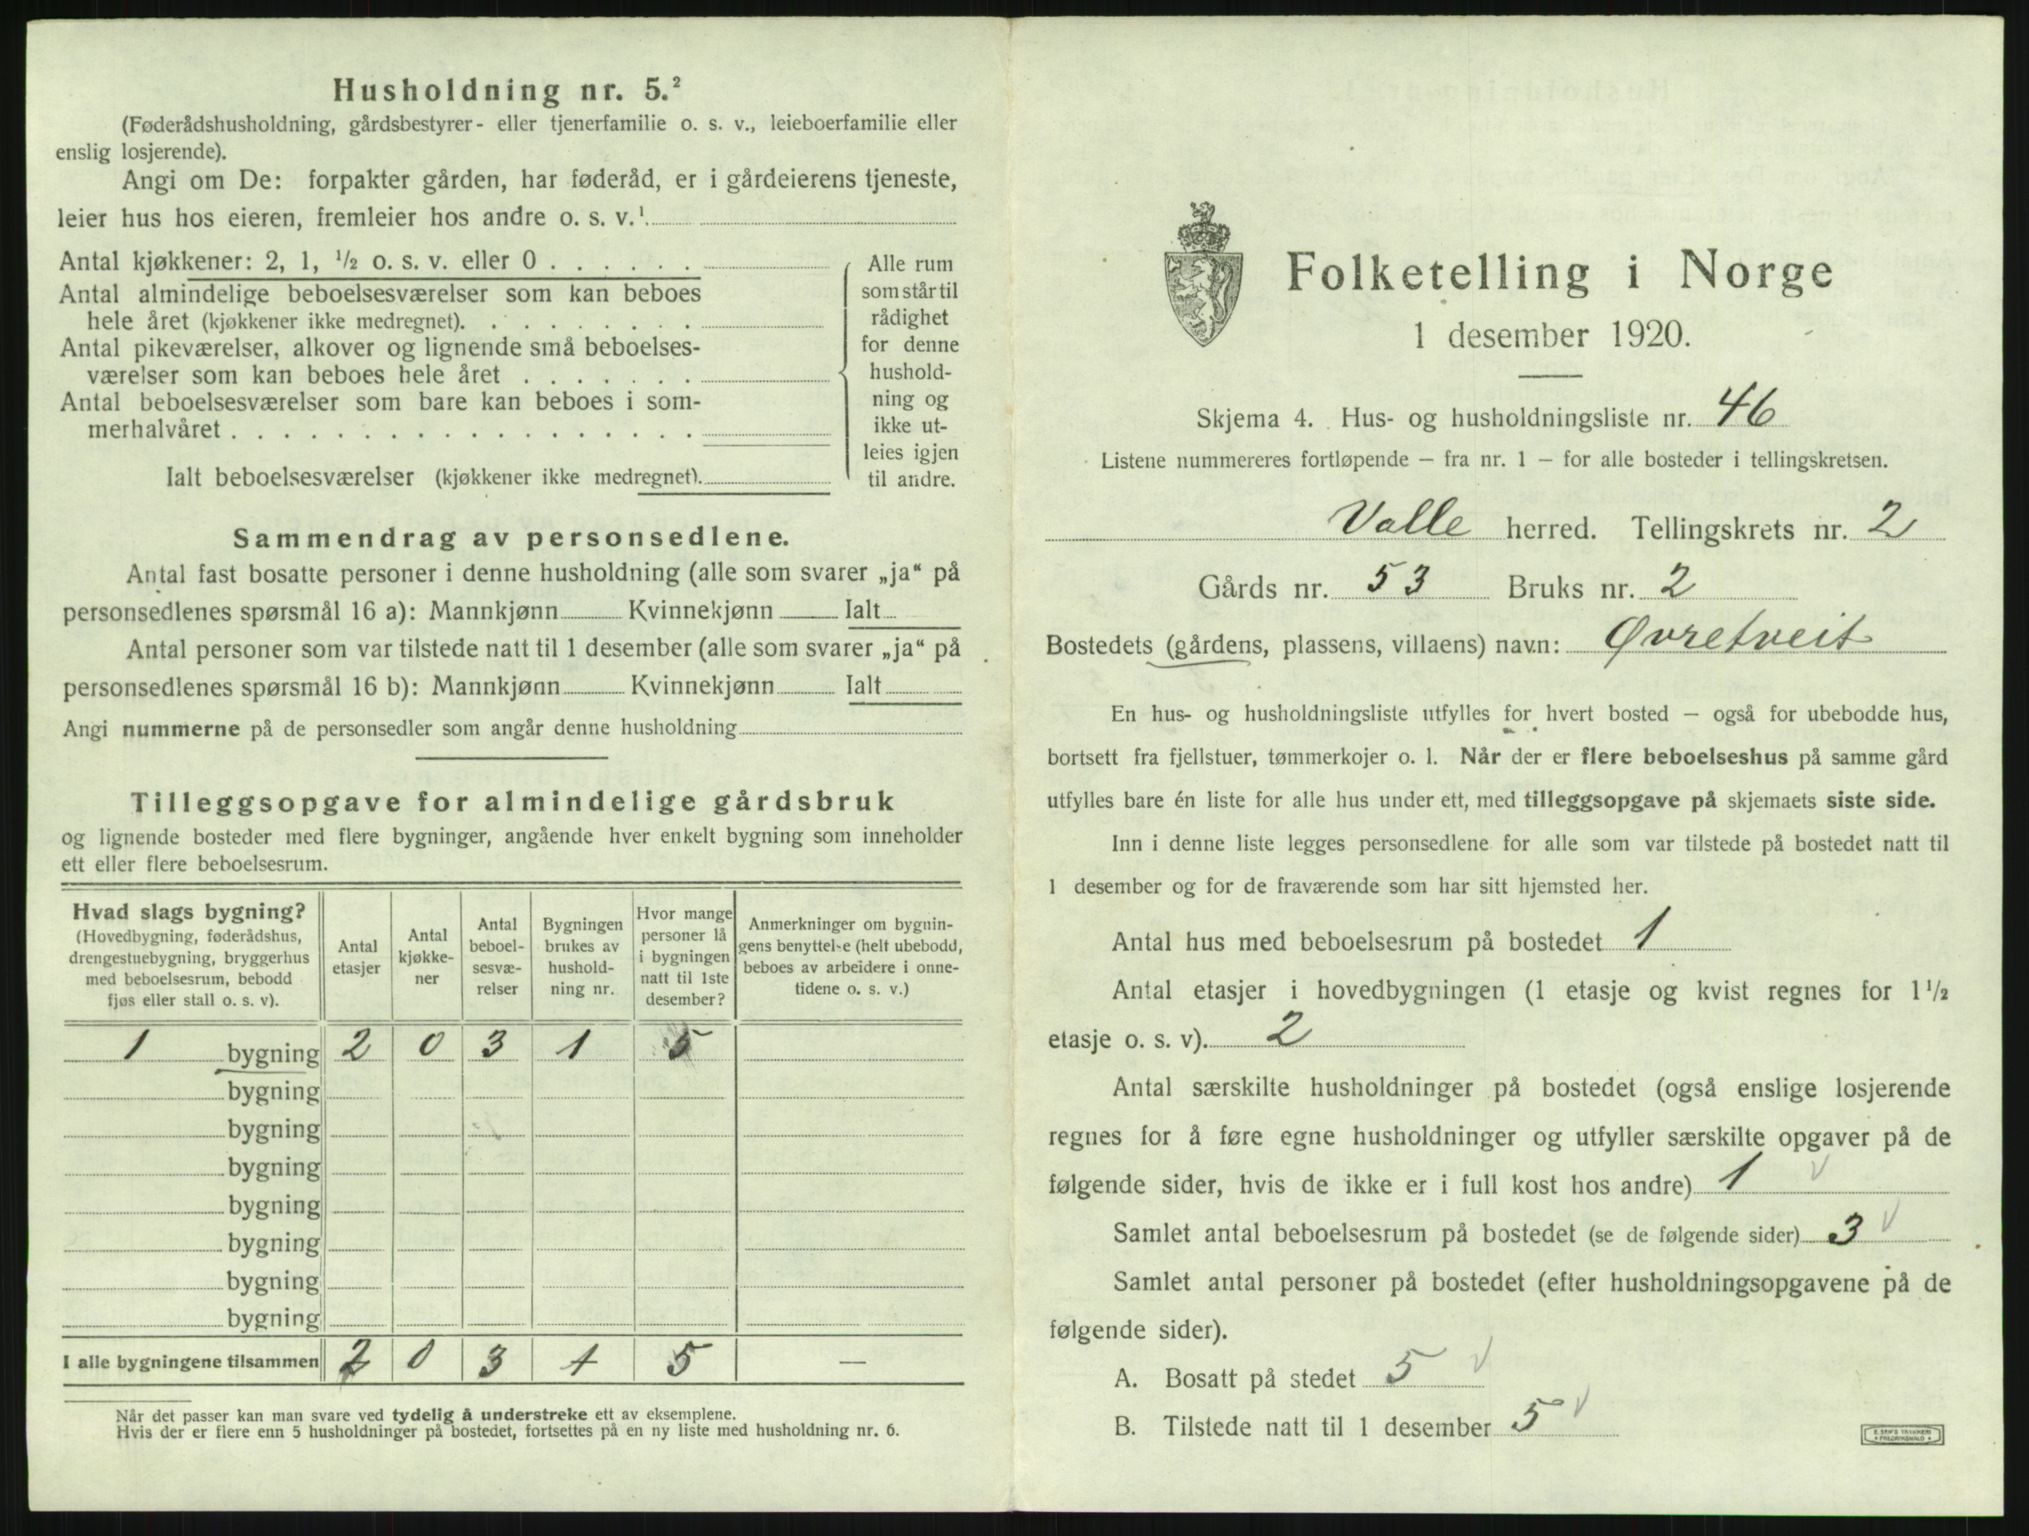 Husholdning nr. 5.²
(Føderådshusholdning, gårdsbestyrer- eller tjenerfamilie o. s. v., leieboerfamilie eller
enslig losjerende).
Angi om De: forpakter gården, har føderåd, er i gårdeierens tjeneste,
leier hus hos eieren, fremleier hos andre o. s. v.¹
Antal kjøkkener: 2, 1, ½ o. s. v. eller 0 . . . . . .
Antal almindelige beboelsesværelser som kan beboes
hele året (kjøkkener ikke medregnet). . . . . . . . .
Antal pikeværelser, alkover og lignende små beboelses-
værelser som kan beboes hele året . . . . . . .
Antal beboelsesværelser som bare kan beboes i som-
merhalvåret . . . . . . . . . . . . . . . . . .
Ialt beboelsesværelser (kjøkkener ikke medregnet).
Alle rum
som står til
rådighet
for denne
hushold-
ning og
ikke ut-
leies igjen
til andre.
Sammendrag av personsedlene.
Antal fast bosatte personer i denne husholdning (alle som svarer „ja“ på
personsedlenes spørsmål 16 a): Mannkjønn Kvinnekjønn Ialt
Antal personer som var tilstede natt til 1 desember (alle som svarer „ja“ på
personsedlenes spørsmål 16 b): Mannkjønn Kvinnekjønn Ialt
Angi nummerne på de personsedler som angår denne husholdning
Tilleggsopgave for almindelige gårdsbruk
og lignende bosteder med flere bygninger, angående hver enkelt bygning som inneholder
ett eller flere beboelsesrum.
Hvad slags bygning?
(Hovedbygning, føderådshus,
drengestuebygning, bryggerhus
med beboelsesrum, bebodd
fjøs eller stall o. s. v).
Antal
etasjer
Antal
kjøkke-
ner
Antal
beboel-
sesvæ-
relser
Bygningen
brukes av
hushold-
ning nr.
Hvor mange
personer lå
i bygningen
natt til 1ste
desember?
Anmerkninger om bygnin-
gens benyttelse (helt ubebodd,
beboes av arbeidere i onne-
tidene o. s. v.)
1 bygning 2 0 3 1 5
bygning
bygning
bygning
bygning
bygning
bygning
bygning
I alle bygningene tilsammen 2 0 3 1 5 —
Når det passer kan man svare ved tydelig å understreke ett av eksemplene.
Hvis der er flere enn 5 husholdninger på bostedet, fortsettes på en ny liste med husholdning nr. 6.
Folketelling i Norge
1 desember 1920.
Skjema 4. Hus- og husholdningsliste nr. 46
Listene nummereres fortløpende — fra nr. 1 — for alle bosteder i tellingskretsen.
Valle herred. Tellingskrets nr. 2
Gårds nr. 53 Bruks nr. 2
Bostedets (gårdens, plassens, villaens) navn: Øvretveit
En hus- og husholdningsliste utfylles for hvert bosted — også for ubebodde hus,
bortsett fra fjellstuer, tømmerkojer o. l. Når der er flere beboelseshus på samme gård
utfylles bare én liste for alle hus under ett, med tilleggsopgave på skjemaets siste side.
Inn i denne liste legges personsedlene for alle som var tilstede på bostedet natt til
1 desember og for de fraværende som har sitt hjemsted her.
Antal hus med beboelsesrum på bostedet 1
Antal etasjer i hovedbygningen (1 etasje og kvist regnes for 1½
etasje o. s. v). 2
Antal særskilte husholdninger på bostedet (også enslige losjerende
regnes for å føre egne husholdninger og utfyller særskilte opgaver på de
følgende sider, hvis de ikke er i full kost hos andre) 1 v
Samlet antal beboelsesrum på bostedet (se de følgende sider) 3 v
Samlet antal personer på bostedet (efter husholdningsopgavene på de
følgende sider).
A. Bosatt på stedet 5 v
B. Tilstede natt til 1 desember 5 v